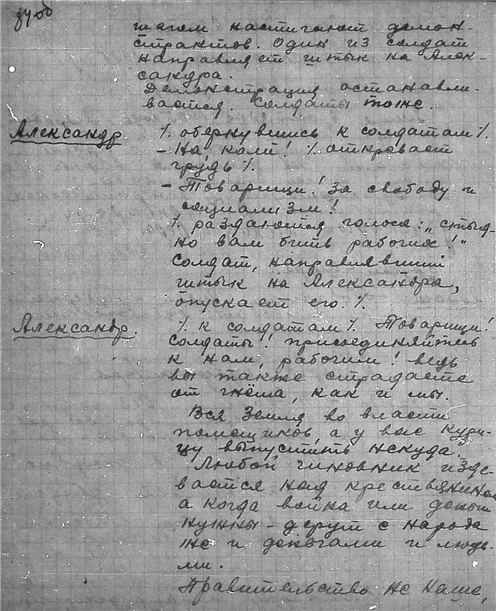 шагом настигают демон-
странтов. Один из солдат
направляет штык на Алек-
сандра.
Демонстрация останавли-
вается. Солдаты тоже.
Александр. % обернувшись к солдатам %.
- На, коли! % открывает
грудь %.
- Товарищи! За свободу и
социализм!
% раздаются голоса: „стыд-
но вам бить рабочих!"
Солдат, направлявший
штык на Александра,
опускает его. %
Александр. % к солдатам %. Товарищи!
Солдаты! Присоединяйтесь
к нам, рабочим! Ведь
вы также страдаете
от гнёта, как и мы.
Вся земля во власти
помещиков, а у вас кури-
цу выпустить некуда.
Любой чиновник изде-
вается над крестьянином
а когда война или деньги
нужны - дерут с народа
же и деньгами и людь-
ми.
Правительство не наше,